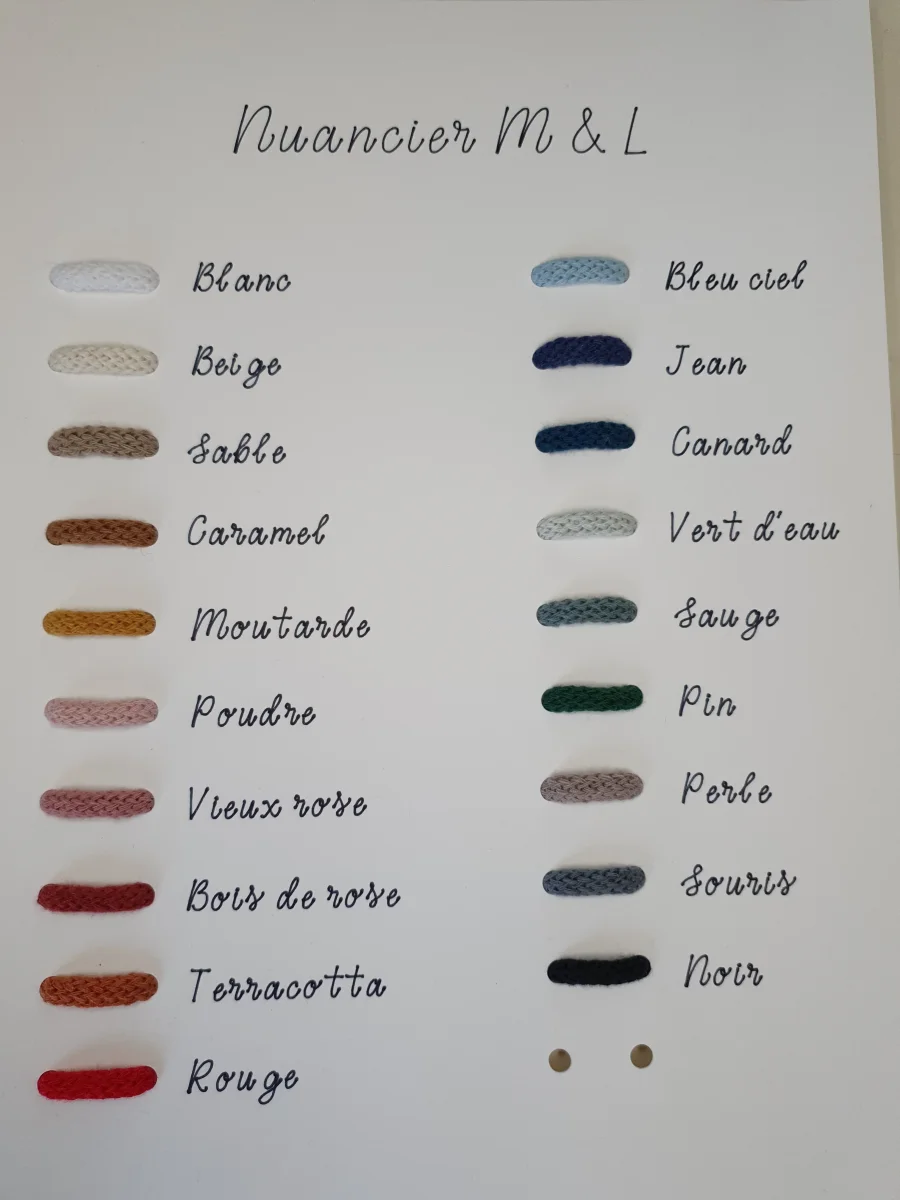 Nuancier M & L
Blanc
Beige
Sable
Caramel
Moutarde
Poudre
Vieux rose
Bois de rose
Terracotta
Rouge
Bleu ciel
Jean
Canard
Vert d'eau
Sauge
Pin
Perle
Souris
Noir